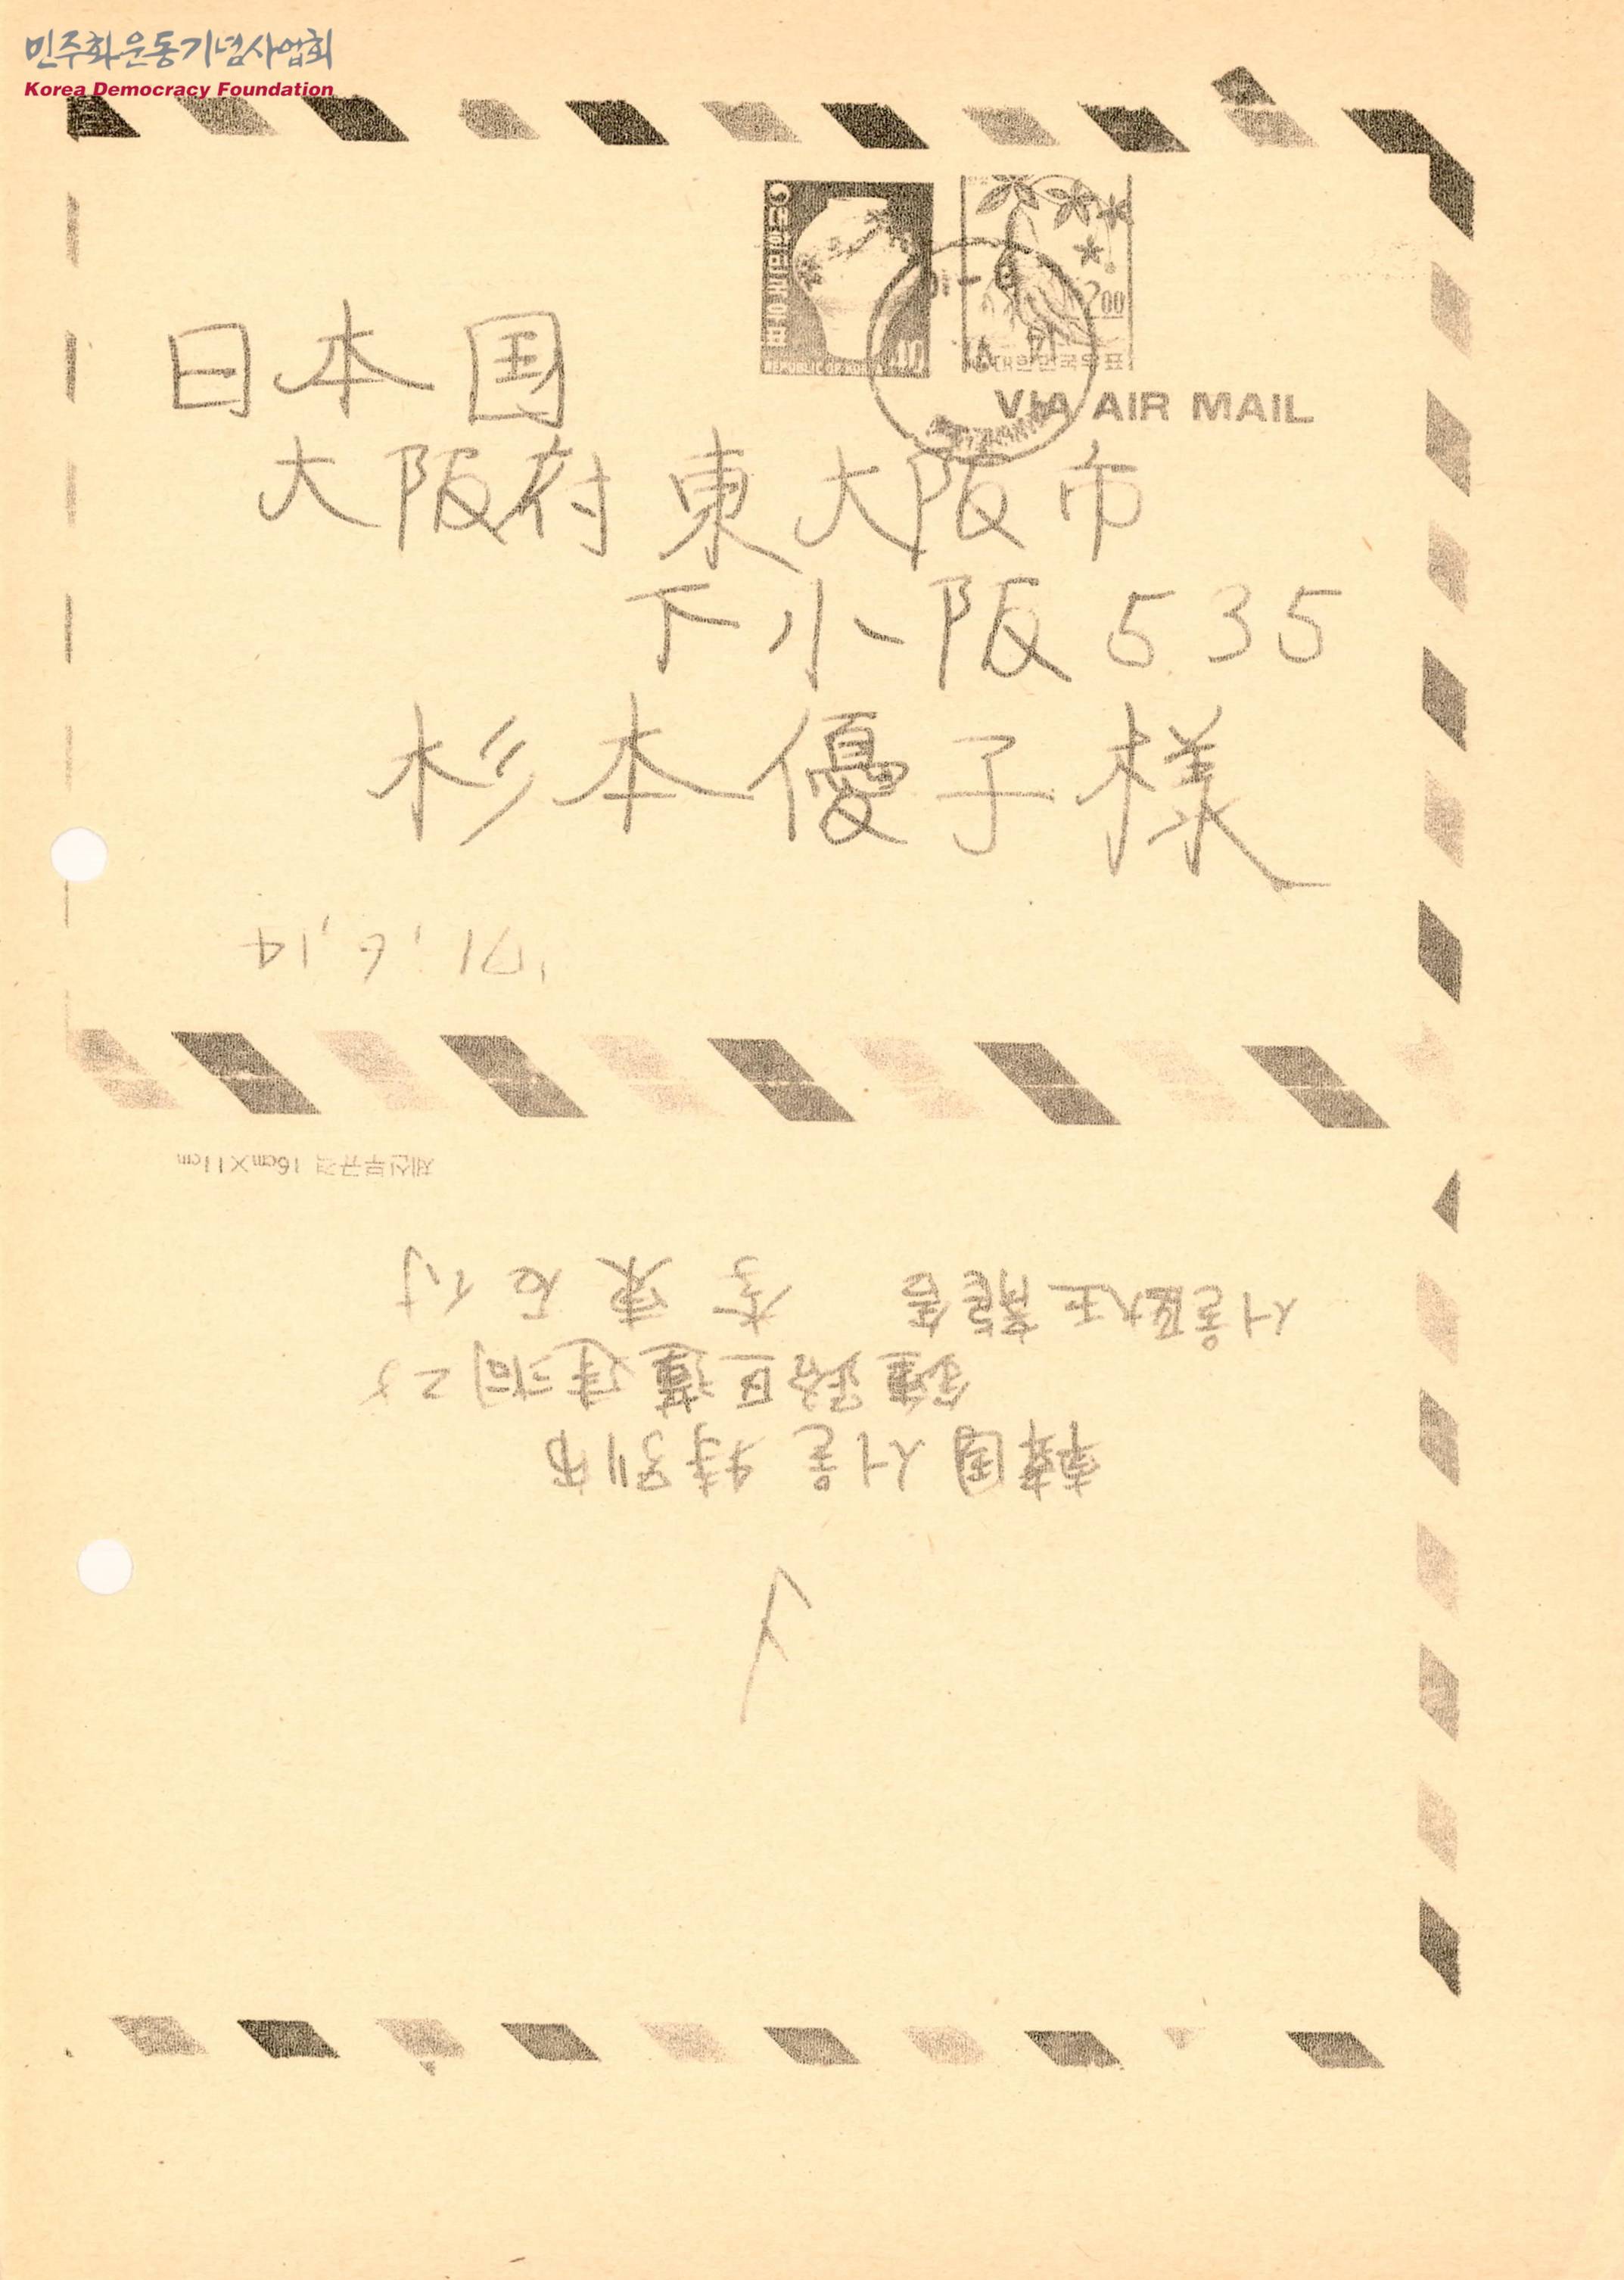 민주화운동기념사업회
Korea Democracy Foundation
대한민국우표
REPUBLIC OF KOREA
40
대한민국우표
VIA AIR MAIL
日本国
大阪府 東大阪市
下小阪 535
杉本優子様
'71, 6, 14
체신부규격 16cm×11cm
韓国 서울 特別市
鍾路区蓮建洞 28
서울医大正龍舎 李東石付